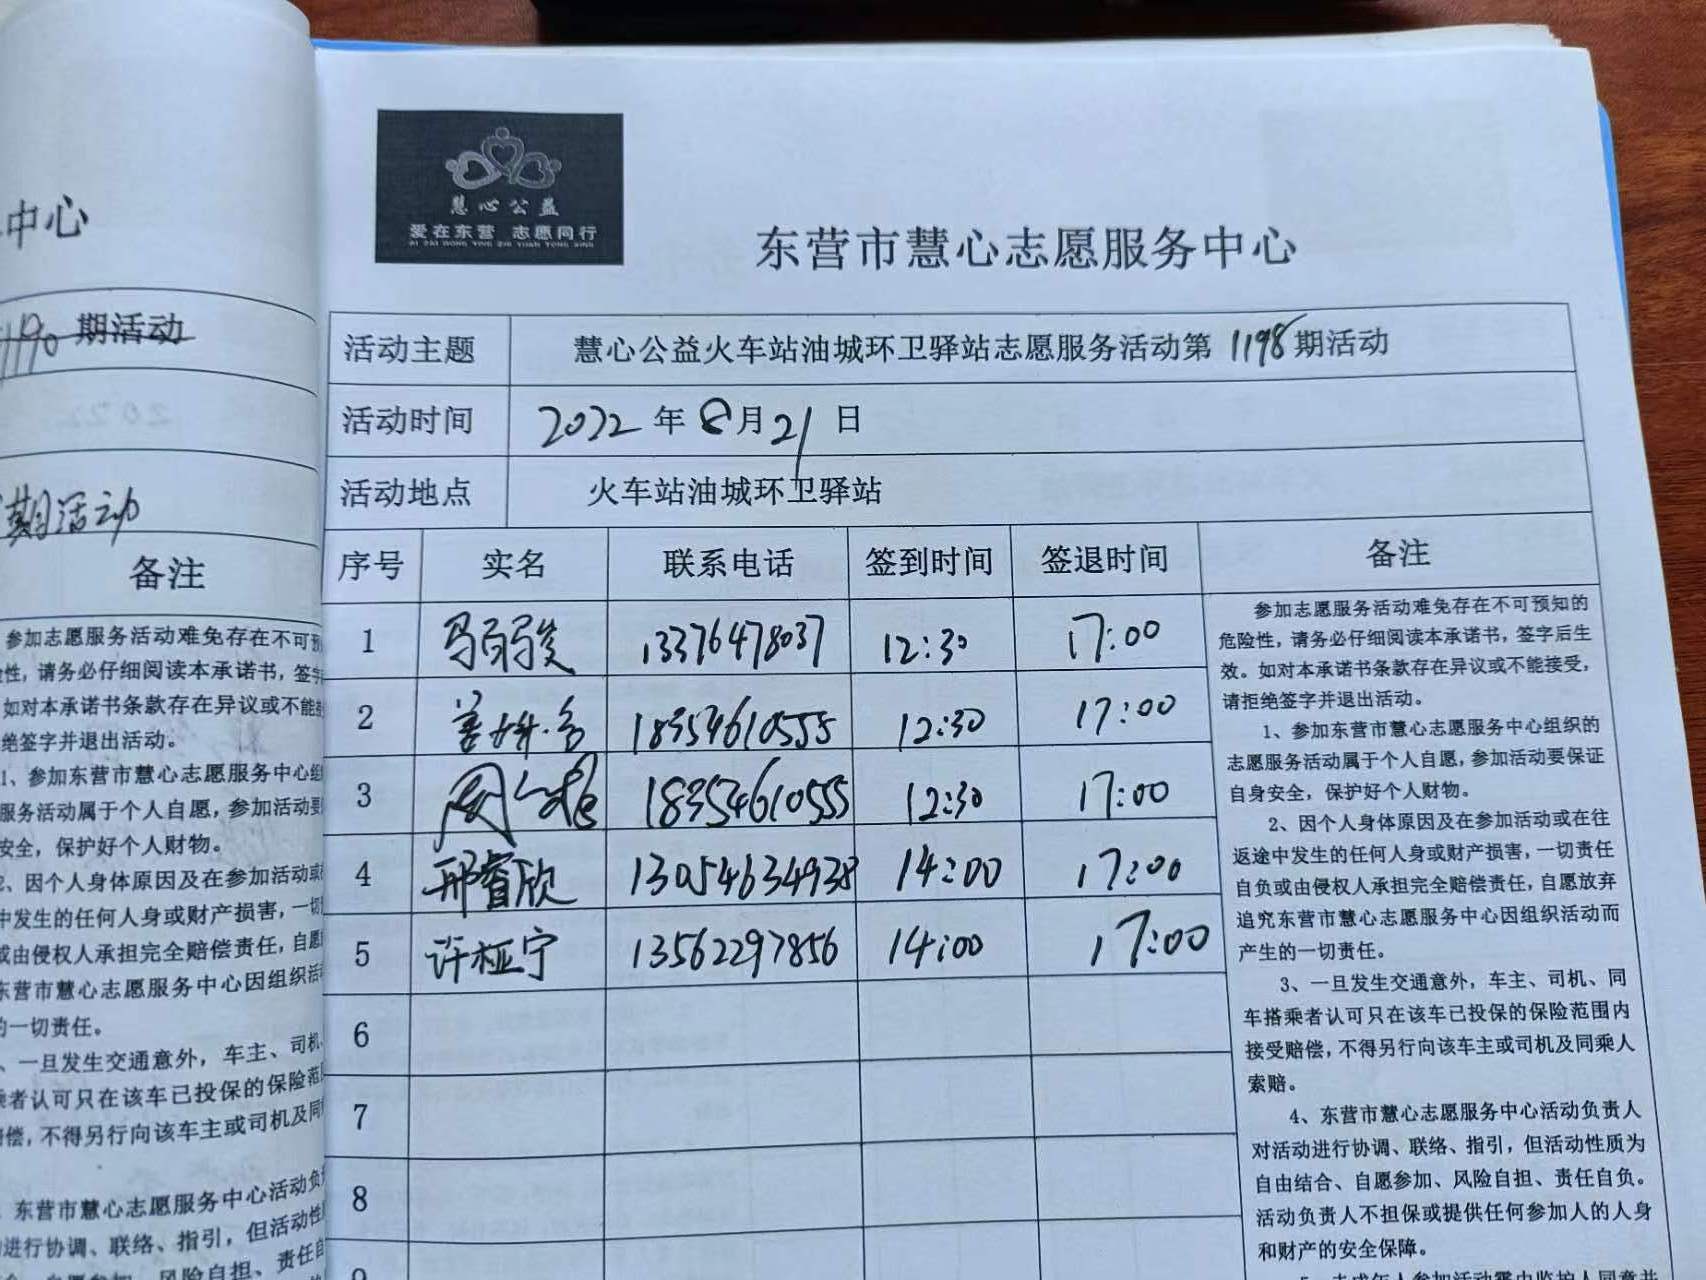 中心
1190 期活动
期活动
备注
参加志愿服务活动难免存在不可预
性，请务必仔细阅读本承诺书，签字
如对本承诺书条款存在异议或不能接
绝签字并退出活动。
1、参加东营市慧心志愿服务中心组
服务活动属于个人自愿，参加活动要
安全，保护好个人财物。
2、因个人身体原因及在参加活动或
中发生的任何人身或财产损害，一切
或由侵权人承担完全赔偿责任，自愿
东营市慧心志愿服务中心因组织活
的一切责任。
、一旦发生交通意外，车主、司机、
乘者认可只在该车已投保的保险范
赔偿，不得另行向该车主或司机及同
东营市慧心志愿服务中心活动负
进行协调、联络、指引，但活动性
风险自担、责任自
慧心公益
爱在东营 志愿同行
AI ZAI DONG YING ZHI YUAN TONG XING
东营市慧心志愿服务中心
活动主题 慧心公益火车站油城环卫驿站志愿服务活动第 1198 期活动
活动时间 2022 年 8 月 21 日
活动地点 火车站油城环卫驿站
序号 实名 联系电话 签到时间 签退时间 备注
1 13376478037 12:30 17:00
2 18354610555 12:30 17:00
3 周 18354610555 12:30 17:00
4 邢睿欣 13054634938 14:00 17:00
5 许桠宁 13562297856 14:00 17:00
6
7
8
9
参加志愿服务活动难免存在不可预知的
危险性，请务必仔细阅读本承诺书，签字后生
效。如对本承诺书条款存在异议或不能接受，
请拒绝签字并退出活动。
1、参加东营市慧心志愿服务中心组织的
志愿服务活动属于个人自愿，参加活动要保证
自身安全，保护好个人财物。
2、因个人身体原因及在参加活动或在往
返途中发生的任何人身或财产损害，一切责任
自负或由侵权人承担完全赔偿责任，自愿放弃
追究东营市慧心志愿服务中心因组织活动而
产生的一切责任。
3、一旦发生交通意外，车主、司机、同
车搭乘者认可只在该车已投保的保险范围内
接受赔偿，不得另行向该车主或司机及同乘人
索赔。
4、东营市慧心志愿服务中心活动负责人
对活动进行协调、联络、指引，但活动性质为
自由结合、自愿参加、风险自担、责任自负。
活动负责人不担保或提供任何参加人的人身
和财产的安全保障。